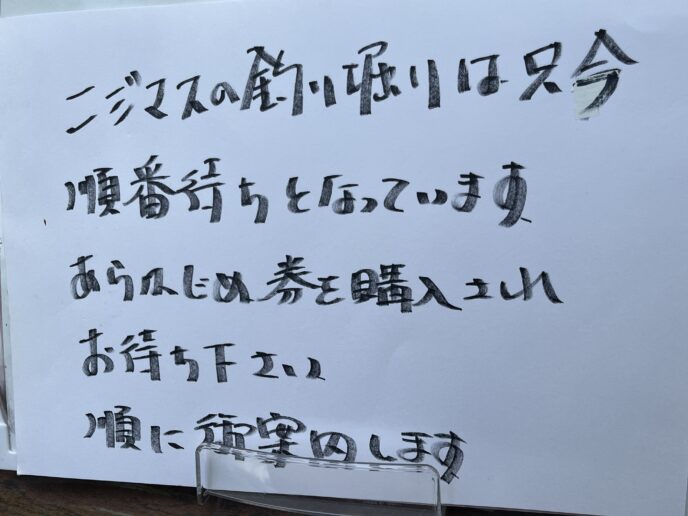 ニジマスの釣り堀りは只今
順番待ちとなっています
あらかじめ券を購入され
お待ち下さい
順に御案内します